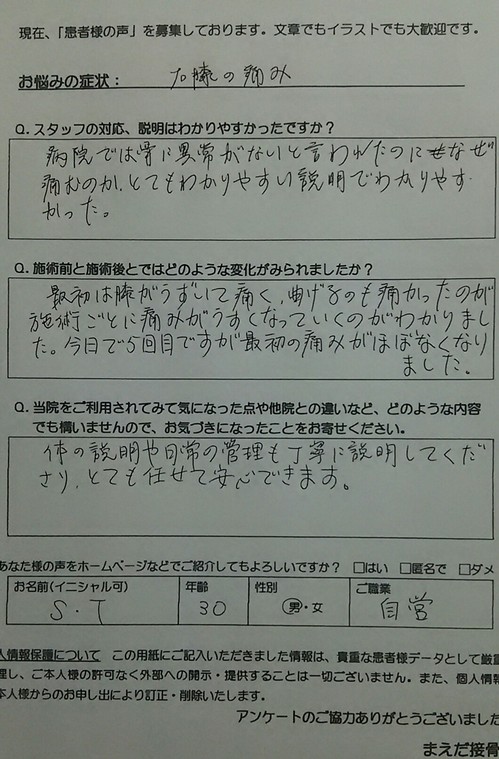 現在、「患者様の声」を募集しております。文章でもイラストでも大歓迎です。
お悩みの症状： 膝の痛み
Q. スタッフの対応、説明はわかりやすかったですか？
病院では骨に異常がないと言われたのになぜ
痛むのか、とてもわかりやすい説明でわかりやす
かった。
Q. 施術前と施術後とではどのような変化がみられましたか？
最初は膝がうずいて痛く、曲げるのも痛かったのが
施術ごとに痛みがうすくなっていくのがわかりまし
た。今日で5回目ですが最初の痛みがほぼなくなり
ました。
Q. 当院をご利用されてみて気になった点や他院との違いなど、どのような内容
でも構いませんので、お気づきになったことをお寄せください。
体の説明や日常の管理も丁寧に説明してくだ
さり、とても任せて安心できます。
あなた様の声をホームページなどでご紹介してもよろしいですか？ □はい □匿名で □ダメ
お名前(イニシャル可) 年齢 性別 ご職業
S・T 30 男・女 自営
人情報保護について この用紙にご記入いただきました情報は、貴重な患者様データとして厳重
理し、ご本人様の許可なく外部への開示・提供することは一切ございません。また、個人情報
本人様からのお申し出により訂正・削除いたします。
アンケートのご協力ありがとうございました
まえだ接骨